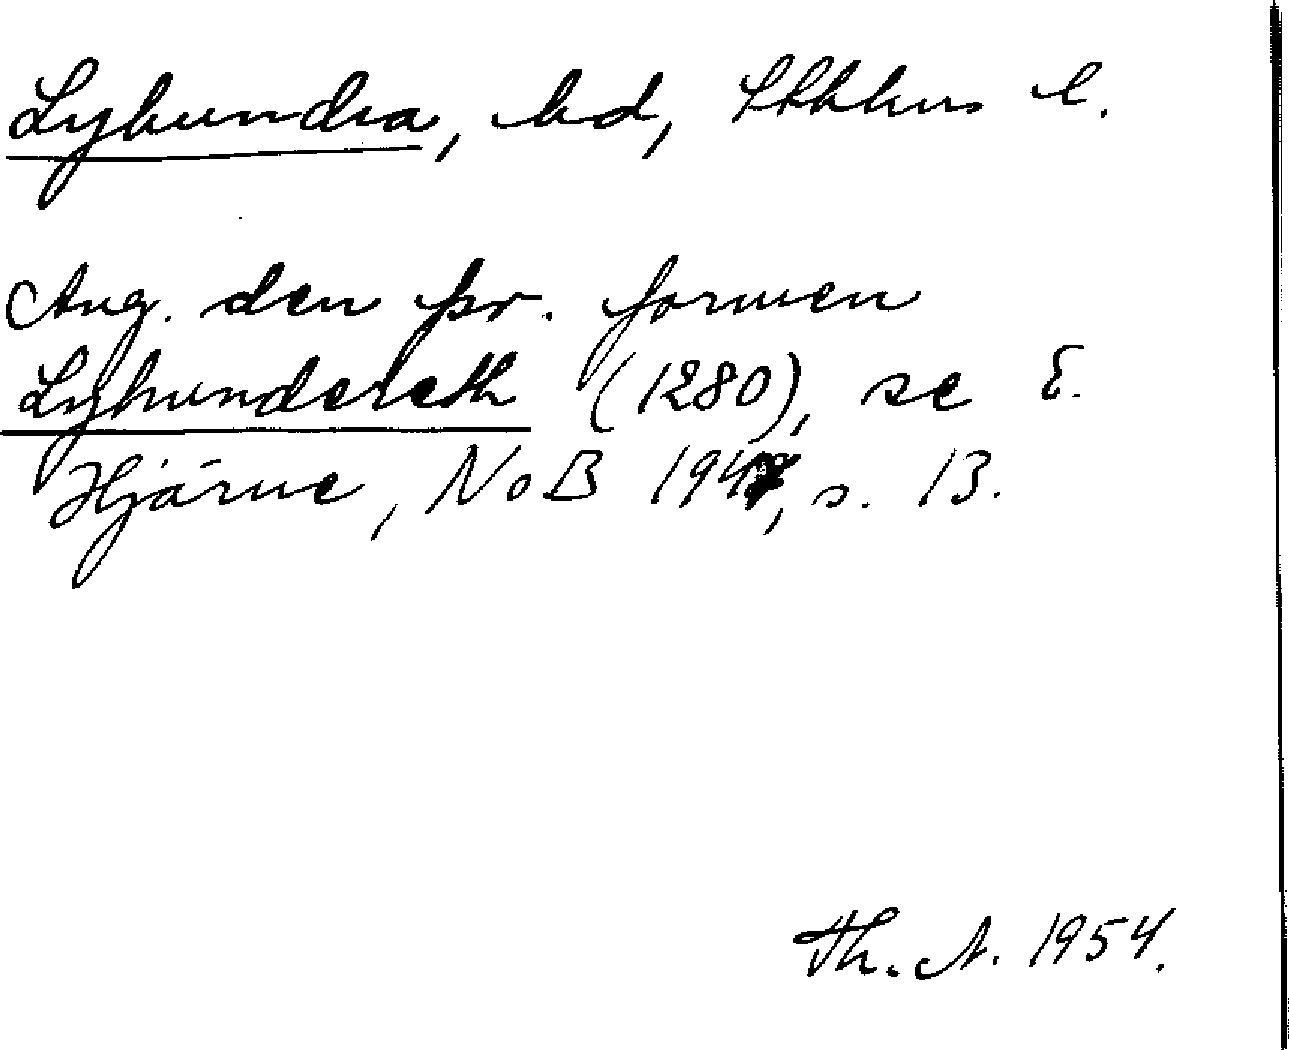 Lyhundra, hd, Sthlms l.
Ang. den pr. formen
Lyhundereth (1280), se E.
Hjärne, NoB 1947, s. 13.
Th. A. 1954.